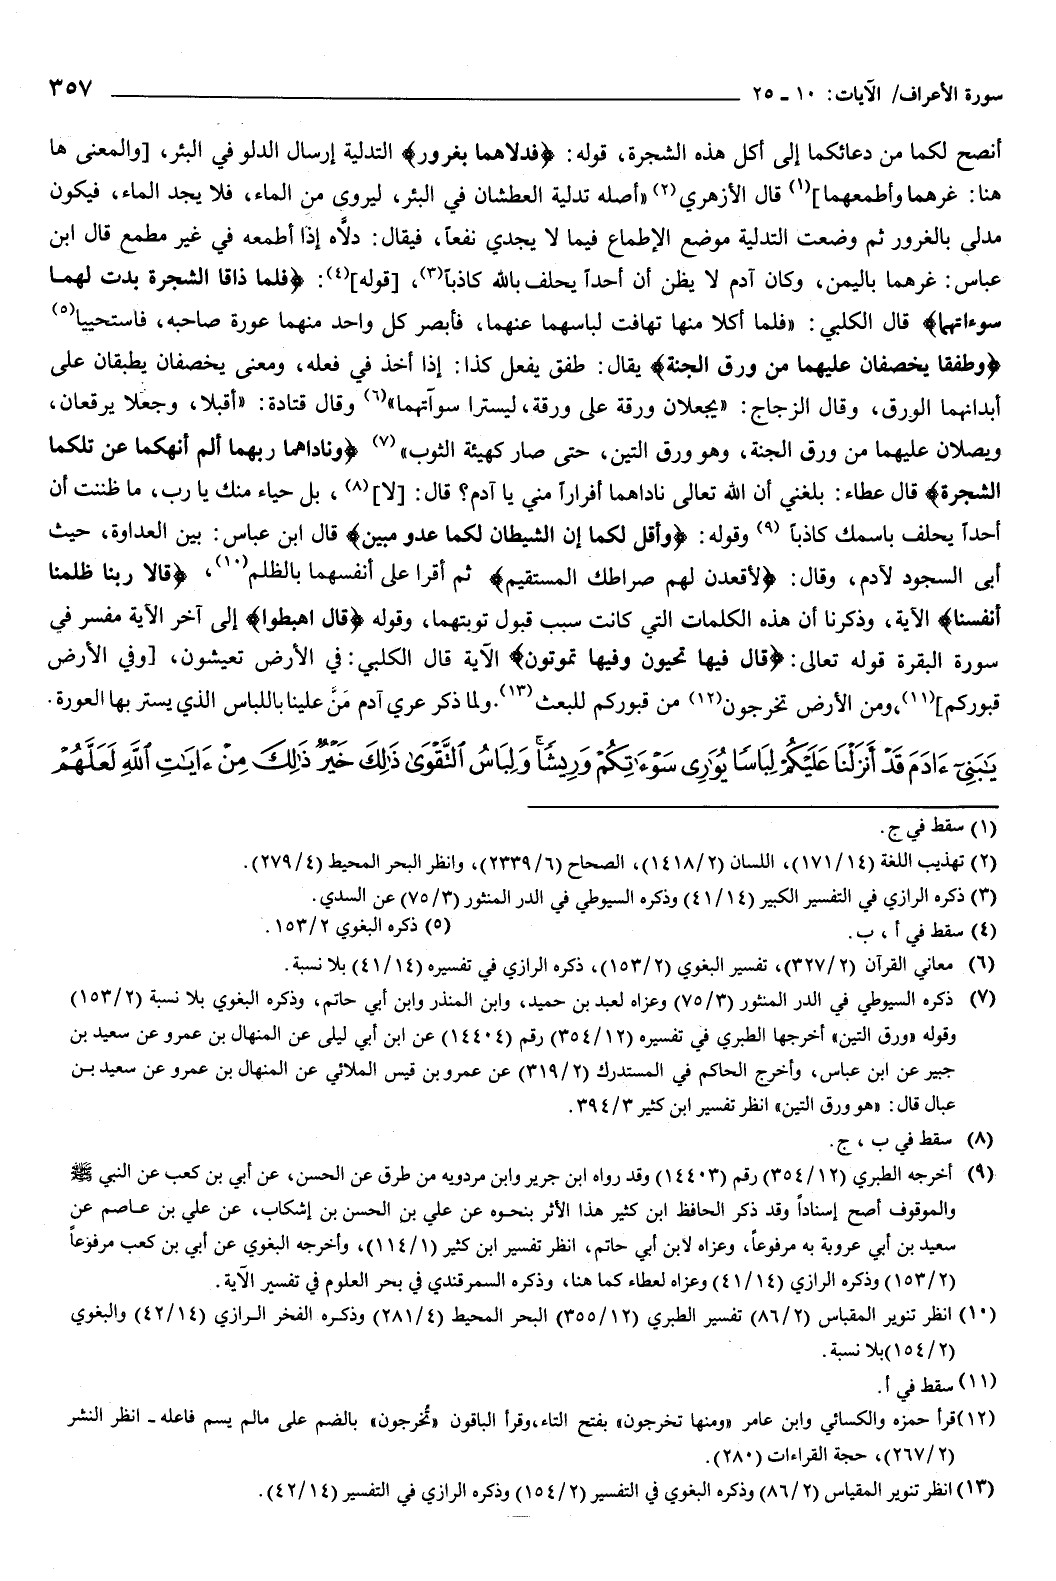 سورة الأعراف/ الآيات: ١٠ ـ ٢٥ ٣٥٧
أنصح لكما من دعائكما إلى أكل هذه الشجرة، قوله: ﴿فدلاهما بغرور﴾ التدلية إرسال الدلو في البئر، [والمعنى ها
هنا: غرهما وأطمعهما](١) قال الأزهري(٢) «أصله تدلية العطشان في البئر، ليروى من الماء، فلا يجد الماء، فيكون
مدلى بالغرور ثم وضعت التدلية موضع الإطماع فيما لا يجدي نفعاً، فيقال: دلاَّه إذا أطمعه في غير مطمع قال ابن
عباس: غرهما باليمن، وكان آدم لا يظن أن أحداً يحلف بالله كاذباً(٣)، [قوله](٤): ﴿فلما ذاقا الشجرة بدت لهمـا
سوءاتهما﴾ قال الكلبي: «فلما أكلا منها تهافت لباسهما عنهما، فأبصر كل واحد منهما عورة صاحبه، فاستحييا(٥)
﴿وطفقا يخصفان عليهما من ورق الجنة﴾ يقال: طفق يفعل كذا: إذا أخذ في فعله، ومعنى يخصفان يطبقان على
أبدانهما الورق، وقال الزجاج: «يجعلان ورقة على ورقة، ليسترا سوآتهما»(٦) وقال قتادة: «أقبلا، وجعلا يرقعان،
ويصلان عليهما من ورق الجنة، وهو ورق التين، حتى صار كهيئة الثوب»(٧) ﴿وناداهما ربهما ألم أنهكما عن تلكما
الشجرة﴾ قال عطاء: بلغني أن الله تعالى ناداهما أفراراً مني يا آدم؟ قال: [لا](٨)، بل حياء منك يا رب، ما ظننت أن
أحداً يحلف باسمك كاذباً (٩) وقوله: ﴿وأقل لكما إن الشيطان لكما عدو مبين﴾ قال ابن عباس: بين العداوة، حيث
أبى السجود لآدم، وقال: ﴿لأقعدن لهم صراطك المستقيم﴾ ثم أقرا على أنفسهما بالظلم(١٠)، ﴿قالا ربنا ظلمنا
أنفسنا﴾ الآية، وذكرنا أن هذه الكلمات التي كانت سبب قبول توبتهما، وقوله ﴿قال اهبطوا﴾ إلى آخر الآية مفسر في
سورة البقرة قوله تعالى: ﴿قال فيها تحيون وفيها تموتون﴾ الآية قال الكلبي: في الأرض تعيشون، [وفي الأرض
قبوركم](١١)، ومن الأرض تخرجون(١٢) من قبوركم للبعث(١٣). ولما ذكر عري آدم مَنَّ علينا باللباس الذي يستر بها العورة.
يَٰبَنِىٓ ءَادَمَ قَدْ أَنزَلْنَا عَلَيْكُمْ لِبَاسًا يُوَٰرِى سَوْءَٰتِكُمْ وَرِيشًا ۖ وَلِبَاسُ ٱلتَّقْوَىٰ ذَٰلِكَ خَيْرٌ ۚ ذَٰلِكَ مِنْ ءَايَٰتِ ٱللَّهِ لَعَلَّهُمْ
(١) سقط في ج.
(٢) تهذيب اللغة (١٧١/١٤)، اللسان (١٤١٨/٢)، الصحاح (٢٣٣٩/٦)، وانظر البحر المحيط (٢٧٩/٤).
(٣) ذكره الرازي في التفسير الكبير (٤١/١٤) وذكره السيوطي في الدر المنثور (٧٥/٣) عن السدي.
(٤) سقط في أ ، ب. (٥) ذكره البغوي ١٥٣/٢.
(٦) معاني القرآن (٣٢٧/٢)، تفسير البغوي (١٥٣/٢)، ذكره الرازي في تفسيره (٤١/١٤) بلا نسبة.
(٧) ذكره السيوطي في الدر المنثور (٧٥/٣) وعزاه لعبد بن حميد، وابن المنذر وابن أبي حاتم، وذكره البغوي بلا نسبة (١٥٣/٢)
وقوله «ورق التين» أخرجها الطبري في تفسيره (٣٥٤/١٢) رقم (١٤٤٠٤) عن ابن أبي ليلى عن المنهال بن عمرو عن سعيد بن
جبير عن ابن عباس، وأخرج الحاكم في المستدرك (٣١٩/٢) عن عمرو بن قيس الملائي عن المنهال بن عمرو عن سعيد بـن
عبال قال: «هو ورق التين» انظر تفسير ابن كثير ٣٩٤/٣.
(٨) سقط في ب ، ج.
(٩) أخرجه الطبري (٣٥٤/١٢) رقم (١٤٤٠٣) وقد رواه ابن جرير وابن مردويه من طرق عن الحسن، عن أبي بن كعب عن النبي ﷺ
والموقوف أصح إسناداً وقد ذكر الحافظ ابن كثير هذا الأثر بنحـوه عن علي بن الحسن بن إشكاب، عن علي بن عـاصم عن
سعيد بن أبي عروبة به مرفوعاً، وعزاه لابن أبي حاتم، انظر تفسير ابن كثير (١١٤/١)، وأخرجه البغوي عن أبي بن كعب مرفوعاً
(١٥٣/٢) وذكره الرازي (٤١/١٤) وعزاه لعطاء كما هنا، وذكره السمرقندي في بحر العلوم في تفسير الآية.
(١٠) انظر تنوير المقباس (٨٦/٢) تفسير الطبري (٣٥٥/١٢) البحر المحيط (٢٨١/٤) وذكـره الفخر الـرازي (٤٢/١٤) والبغوي
(١٥٤/٢) بلا نسبة.
(١١) سقط في أ.
(١٢) قرأ حمزه والكسائي وابن عامر «ومنها تخرجون» بفتح التاء، وقرأ الباقون «تُخرجون» بالضم على مالم يسم فاعله ـ انظر النشر
(٢٦٧/٢)، حجة القراءات (٢٨٠).
(١٣) انظر تنوير المقياس (٨٦/٢) وذكره البغوي في التفسير (١٥٤/٢) وذكره الرازي في التفسير (٤٢/١٤).